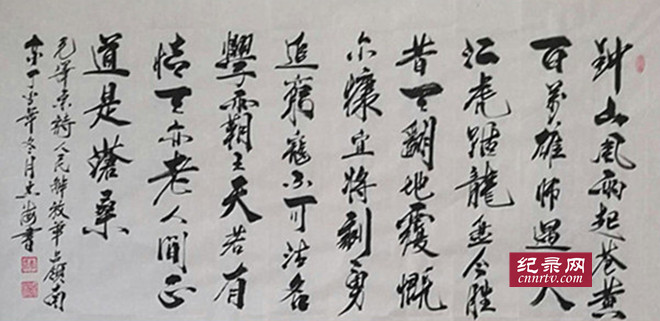 鈡山風雨起苍黄
百萬雄师過大
江虎踞龍盘今胜
昔天翻地覆慨
而慷宜将剩勇
追窮寇不可沽名
學霸王天若有
情天亦老人间正
道是滄桑
毛泽东诗人民解放军占领南
京 年冬月 海書
纪录网
cnnrtv.com